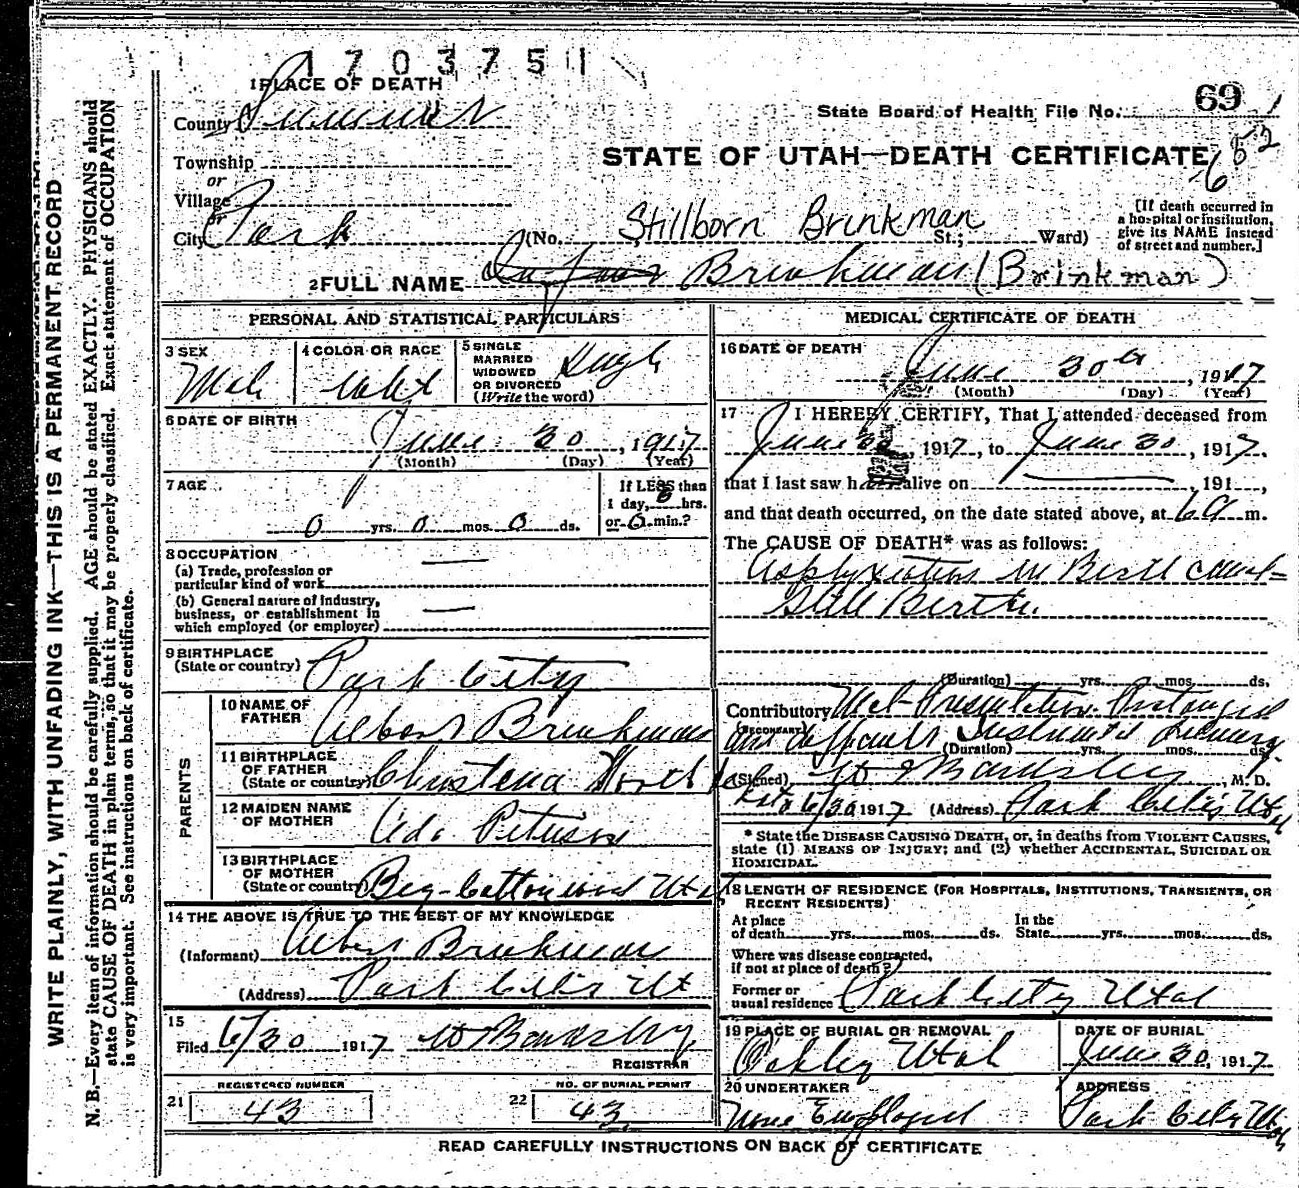 1703751
1 PLACE OF DEATH
County Summit
State Board of Health File No. 69
Township
or
Village
or
STATE OF UTAH—DEATH CERTIFICATE
652
City Park (No. Stillborn Brinkman St.; Ward)
[If death occurred in a hospital or institution, give its NAME instead of street and number.]
2 FULL NAME Infant Brinkman (Brinkman)
PERSONAL AND STATISTICAL PARTICULARS
3 SEX
Male
4 COLOR OR RACE
White
5 SINGLE MARRIED WIDOWED OR DIVORCED (Write the word)
Single
6 DATE OF BIRTH
June 30, 1917
(Month) (Day) (Year)
7 AGE
0 yrs. 0 mos. 0 ds.
If LESS than
1 day, 0 hrs.
or 0 min.?
8 OCCUPATION
(a) Trade, profession or
particular kind of work —
(b) General nature of industry,
business, or establishment in
which employed (or employer) —
9 BIRTHPLACE
(State or country) Park City
PARENTS
10 NAME OF FATHER
Albert Brinkman
11 BIRTHPLACE OF FATHER
(State or country)
12 MAIDEN NAME OF MOTHER
Ada Peterson
13 BIRTHPLACE OF MOTHER
(State or country) Big Cottonwood Utah
14 THE ABOVE IS TRUE TO THE BEST OF MY KNOWLEDGE
(Informant) Albert Brinkman
(Address) Park City Ut
15
Filed 6/30 1917 W Bardsley
REGISTRAR
REGISTERED NUMBER
21 43
NO. OF BURIAL PERMIT
22 43
MEDICAL CERTIFICATE OF DEATH
16 DATE OF DEATH
June 30th, 1917
(Month) (Day) (Year)
17 I HEREBY CERTIFY, That I attended deceased from
June 30, 1917, to June 30, 1917.
that I last saw h alive on —, 191 ,
and that death occurred, on the date stated above, at 6 A m.
The CAUSE OF DEATH* was as follows:
Asphyxiation in Birth canal-
Still Birth.
(Duration) yrs. mos. ds.
Contributory Mal-Presentation. Prolonged
(SECONDARY) and difficult Instrument Delivery
(Duration) yrs. mos. ds.
(Signed) W Bardsley, M. D.
6/30 1917 (Address) Park City Utah
* State the DISEASE CAUSING DEATH, or, in deaths from VIOLENT CAUSES,
state (1) MEANS OF INJURY; and (2) whether ACCIDENTAL, SUICIDAL OR
HOMICIDAL.
18 LENGTH OF RESIDENCE (FOR HOSPITALS, INSTITUTIONS, TRANSIENTS, OR
RECENT RESIDENTS)
At place
of death yrs. mos. ds.
In the
State yrs. mos. ds.
Where was disease contracted,
if not at place of death?
Former or
usual residence Park City Utah
19 PLACE OF BURIAL OR REMOVAL
Oakley Utah
DATE OF BURIAL
June 30, 1917
20 UNDERTAKER
None Employed
ADDRESS
Park City Utah
READ CAREFULLY INSTRUCTIONS ON BACK OF CERTIFICATE
WRITE PLAINLY, WITH UNFADING INK—THIS IS A PERMANENT RECORD
N. B.—Every item of information should be carefully supplied. AGE should be stated EXACTLY. PHYSICIANS should
state CAUSE OF DEATH in plain terms, so that it may be properly classified. Exact statement of OCCUPATION
is very important. See instructions on back of certificate.